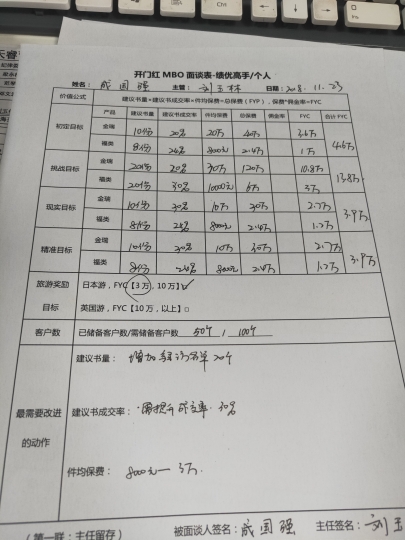 开门红 MBO 面谈表-绩优高手/个人
姓名： 成国强 主管： 刘玉林 日期： 2018.11.23
价值公式 建议书量*建议书成交率*件均保费=总保费（FYP），保费*佣金率=FYC
产品 建议书量 建议书成交率 件均保费 总保费 佣金率 FYC 合计FYC
初定目标 金瑞 10份 20% 20万 40万 3.6万 4.6万
福类 8份 24% 8000元 2.4万 1万
挑战目标 金瑞 20份 20% 30万 120万 10.8万 13.8万
福类 20份 30% 10000元 6万 3万
现实目标 金瑞 10份 30% 10万 30万 2.7万 3.9万
福类 8份 24% 8000元 2.4万 1.2万
精准目标 金瑞 10份 30% 10万 30万 2.7万 3.9万
福类 8份 24% 8000元 2.4万 1.2万
旅游奖励 日本游，FYC【3万，10万】☑
目标 英国游，FYC【10万，以上】□
客户数 已储备客户数/需储备客户数 50个 / 100个
建议书量： 增加 名单 20个
最需要改进 建议书成交率： 需提升成交率 30%
的动作
件均保费： 8000元—3万.
（第一联：主任留存） 被面谈人签名： 成国强 主任签名： 刘玉